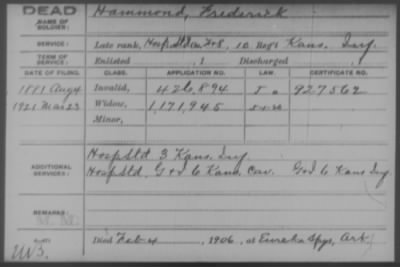 DEAD Hammond, Frederick
NAME OF SOLDIER:
SERVICE: Late rank, Hosp Std Co. F&S, 10 Reg't Kans. Inf.
TERM OF SERVICE: Enlisted , 1 Discharged
DATE OF FILING. CLASS. APPLICATION NO. LAW. CERTIFICATE NO.
1881 Aug 4 Invalid, 426,894 927562
1921 Mar 23 Widow, 1,171,945
Minor,
Hosp Std 3 Kans. Inf.
ADDITIONAL SERVICES: Hosp Std, G & I 6 Kans. Cav. G & I 6 Kans Inf
REMARKS:
Died Feb 4 , 1906, at Eureka Spgs, Ark.